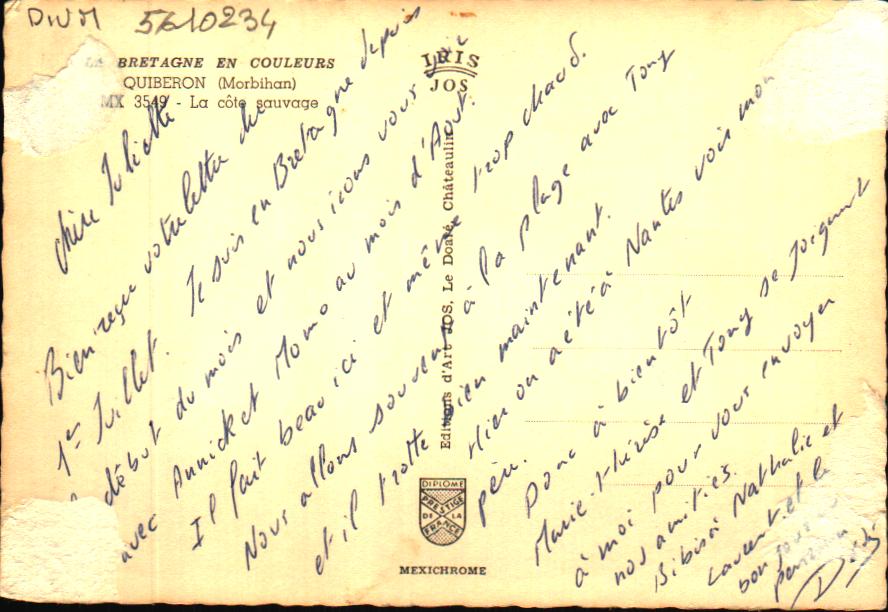 DIVM 5610234
LA BRETAGNE EN COULEURS
QUIBERON (Morbihan)
MX 3549 - La côte sauvage
IRIS
JOS
Editions d'Art JOS, Le Doaré, Châteaulin
DIPLOME
PRESTIGE
DE LA
FRANCE
MEXICHROME
chère Juliette
Bien reçue votre lettre du
1er Juillet. Je suis en Bretagne depuis
début du mois et nous irons vous voir
avec Annick et Momo au mois d'Aout.
Il fait beau ici et même trop chaud.
Nous allons souvent à la plage avec Tony
et il trotte bien maintenant.
Hier on a été à Nantes voir mon
père.
Donc à bientôt
Marie-Thérèse et Tony se joignent
à moi pour vous envoyer
nos amitiés.
Bibis à Nathalie et
Laurent et le
bon jour